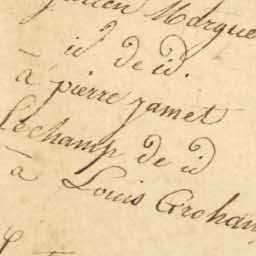 Julien Morgue
— id de id.
à pierre jamet
lechamp de id
— à Louis Grohan